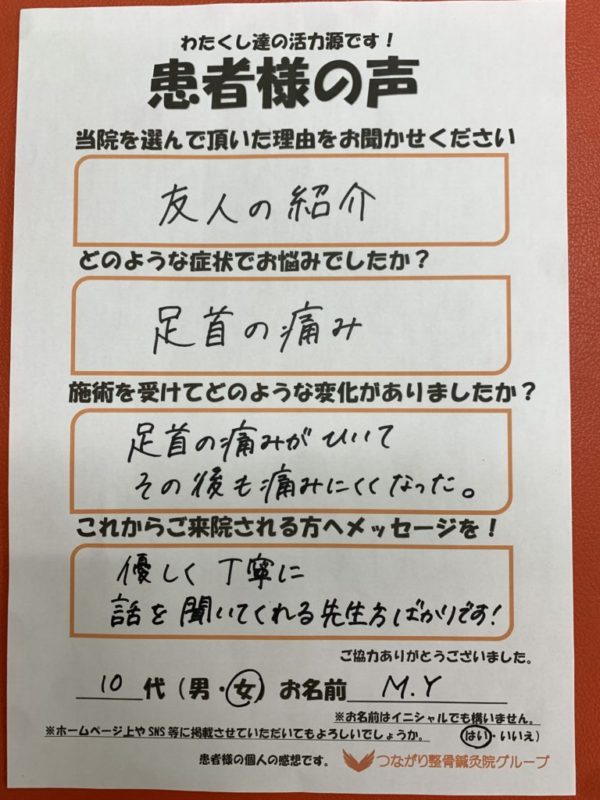 わたくし達の活力源です！
患者様の声
当院を選んで頂いた理由をお聞かせください
友人の紹介
どのような症状でお悩みでしたか？
足首の痛み
施術を受けてどのような変化がありましたか？
足首の痛みがひいて
その後も痛みにくくなった。
これからご来院される方へメッセージを！
優しく丁寧に
話を聞いてくれる先生方ばかりです!
ご協力ありがとうございました。
10代（男・女）お名前 M.Y
※お名前はイニシャルでも構いません。
※ホームページ上やSNS等に掲載させていただいてもよろしいでしょうか。（はい・いいえ）
患者様の個人の感想です。 つながり整骨鍼灸院グループ